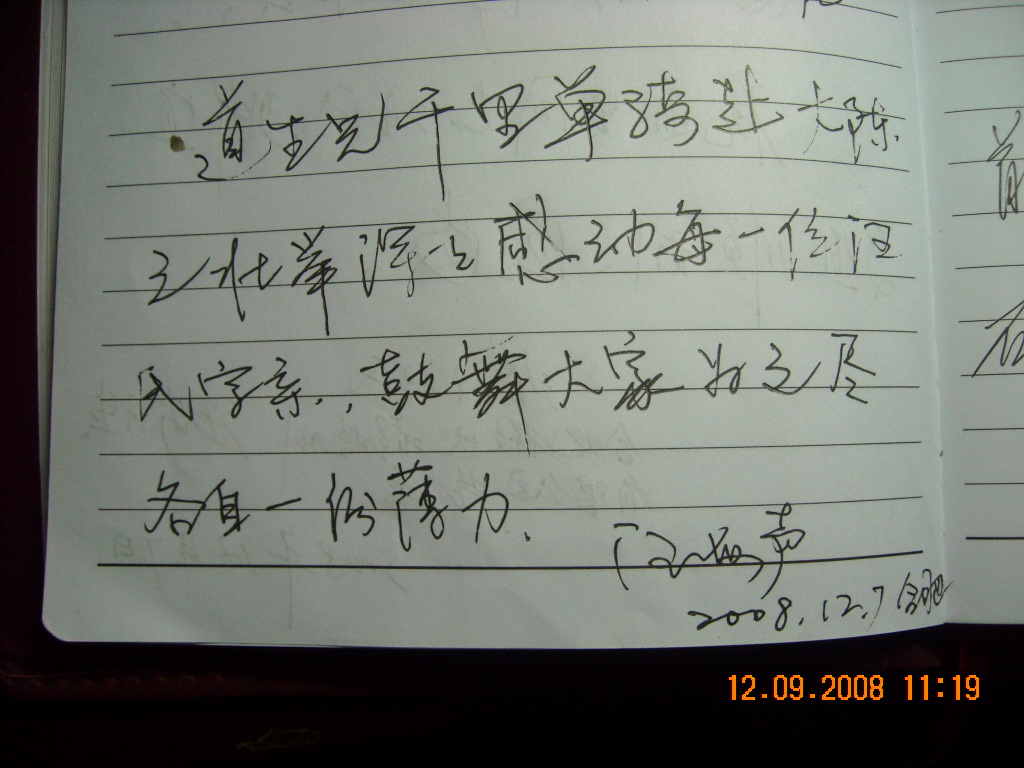 道生兄千里单骑赴大陈
之壮举深深感动每一位汪
氏宗亲，鼓舞大家为之尽
各自一份薄力.
汪 声
2008.12.7 合肥
12.09.2008 11:19